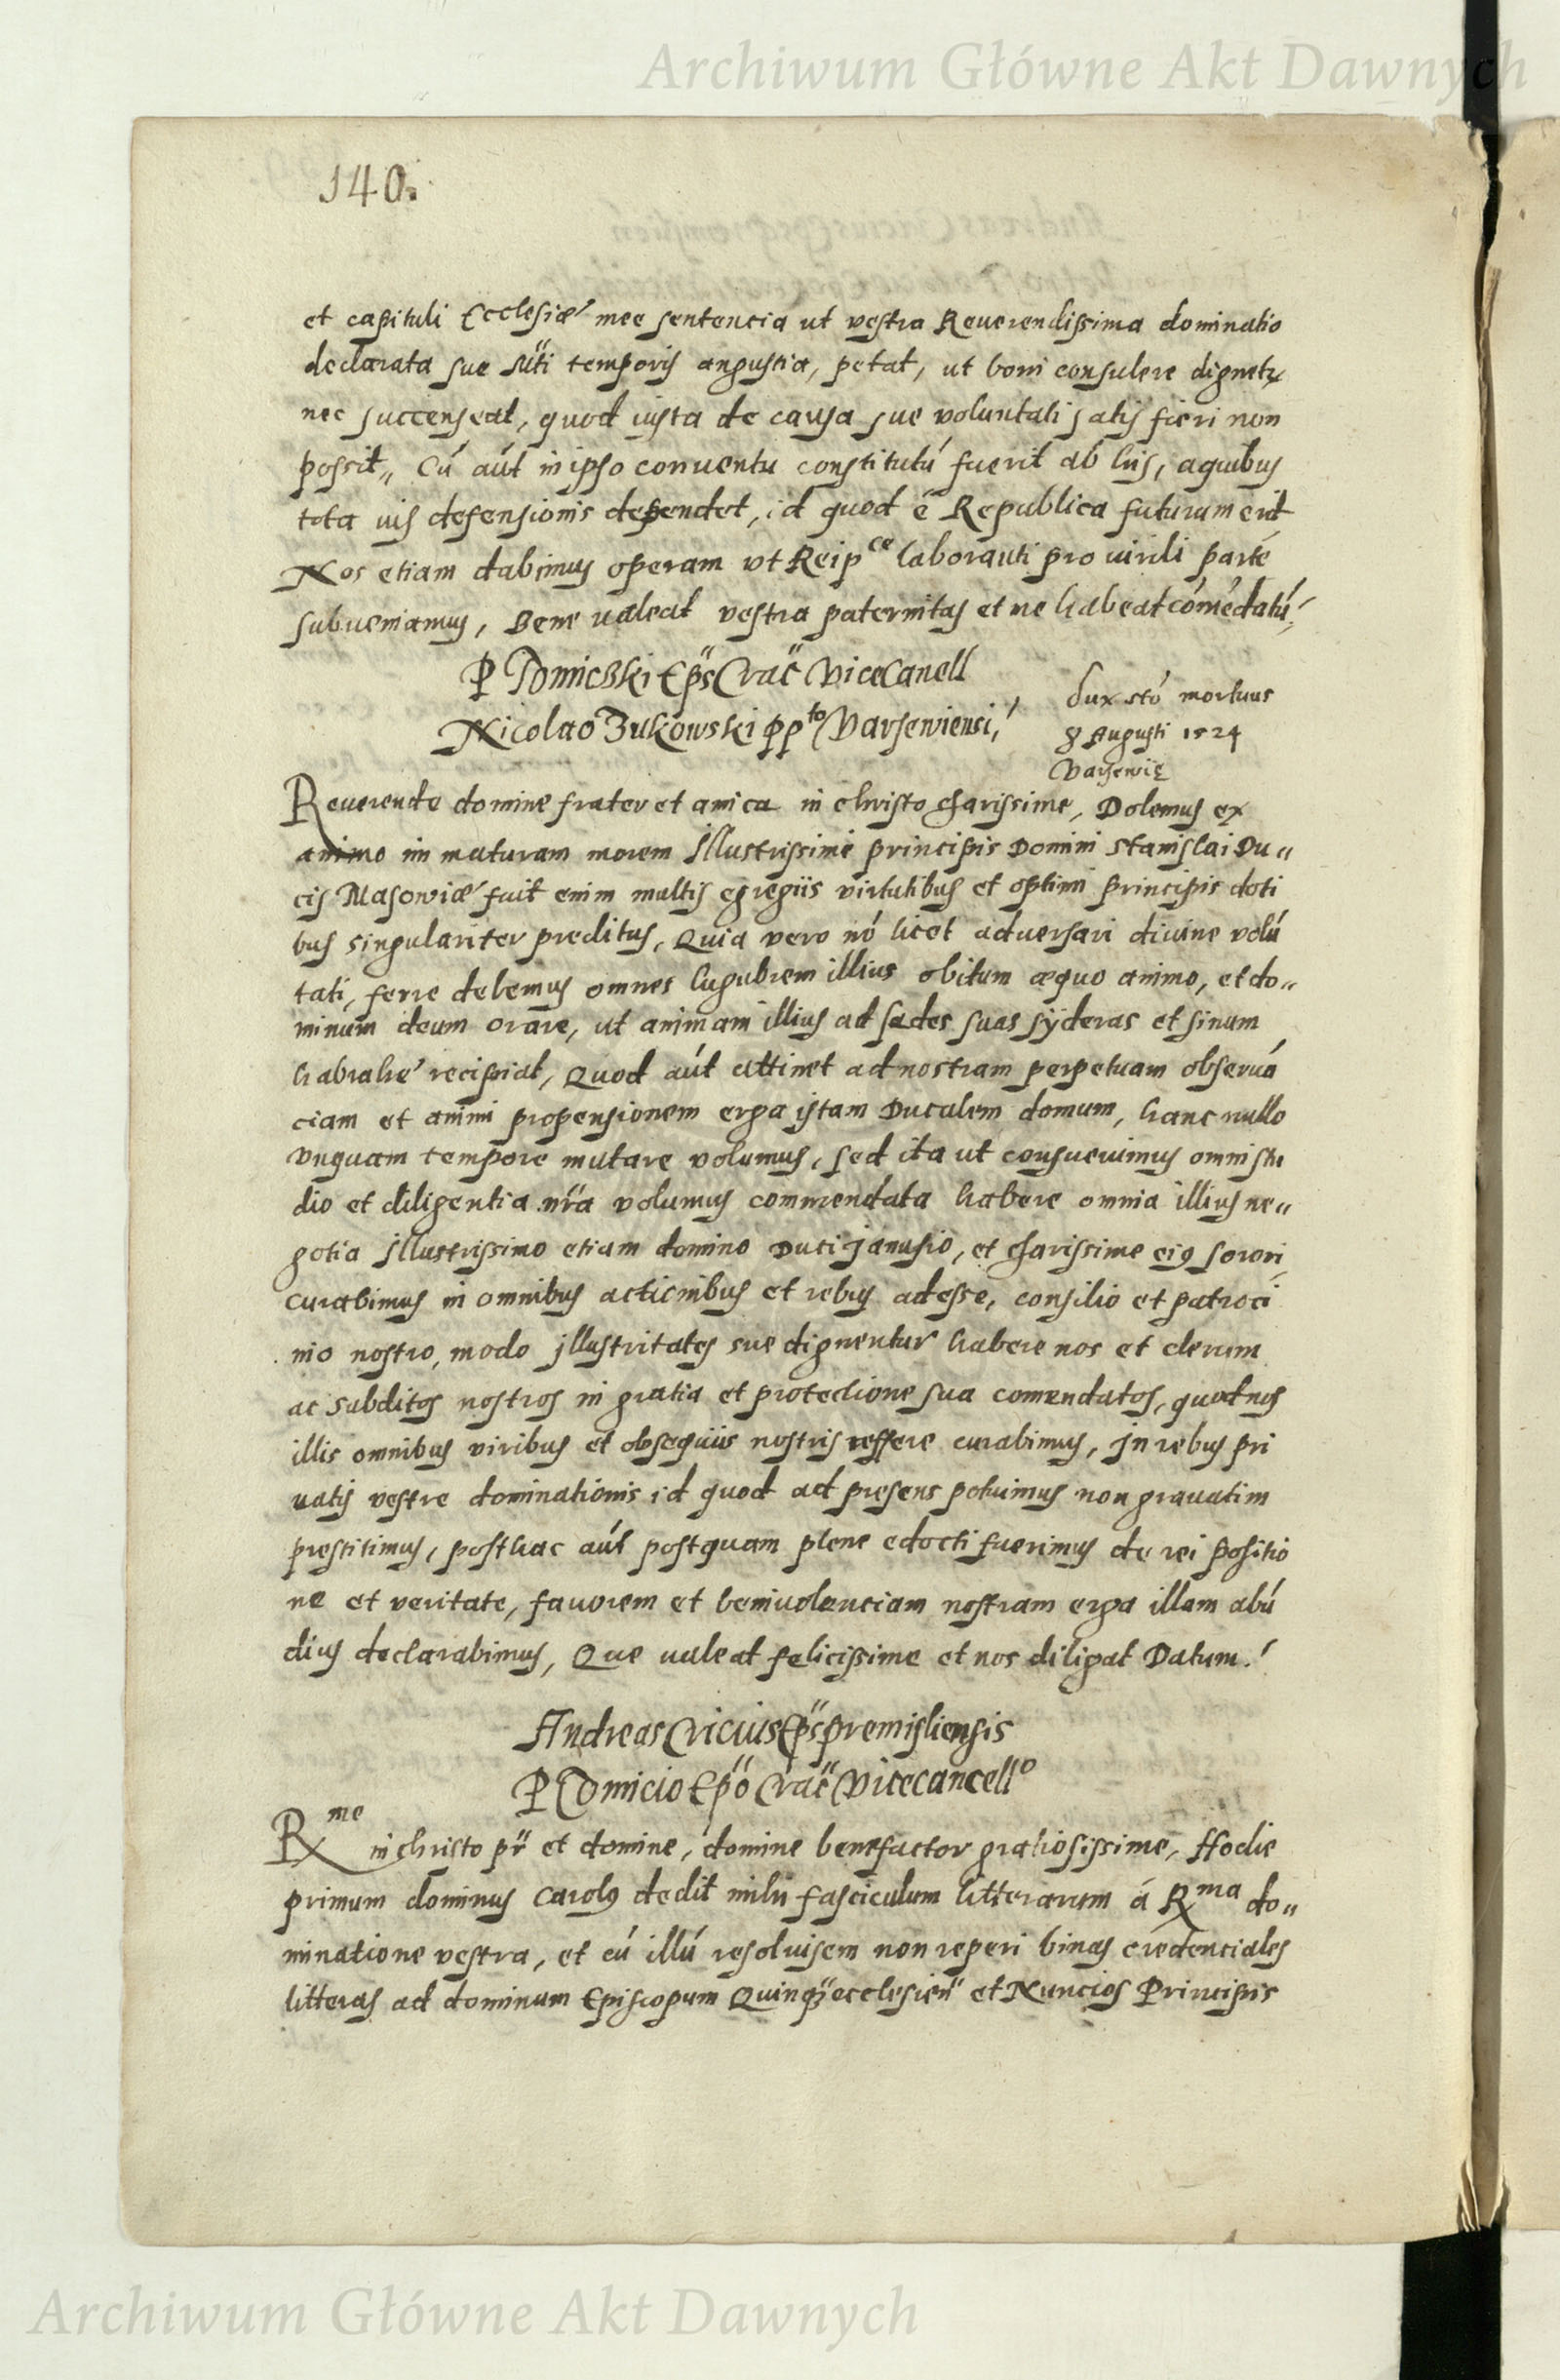 Archiwum Główne Akt Dawnych
140.
et capituli Ecclesiæ mee sentencia ut vestra Reuerendissima dominatio
declarata sue Sũti temporis angustia, petat, ut boni consulere dignetr
nec succenseat, quod iusta de causa sue voluntati satis fieri non
possit,, Cú aút in ipso conuentu constitutú fuerit ab his, aquibus
tota uis defensionis dependet, id quod é Republica futurum erit
Nos etiam dabimus operam vt Reipce laboranti pro uirili parté
subueniamus, Bene ualeat vestra paternitas et me habeat cómédatú,
P Tomiczki Epũs Crac̃ ViceCancll
Nicolao Zukowski pp̱to Varsewiensi,
dux stó mortuus
8 Augusti 1524
Varsewię
Reuerende domine frater et amica in christo charissime, Dolemus ex
animo im maturam morem Illustrissimi principis Domini Stanislai Du,,
cis Masowiæ fuit enim multis egregiis virtutibus et optimi principis doti
bus singulariter preditus, Quia vero nó licet aduersari diuine volú
tati, ferre debemus omnes lugubrem illius obitum æquo animo, et do,,
minum deum orare, ut animam illius ad sedes suas syderas et sinum
habrahe recipiat, Quod aút attinet ad nostram perpetuam obseruá
ciam et animi propensionem erga istam Ducalem domum, hanc nullo
vnquam tempore mutare volumus, sed ita ut consueuimus omni stu
dio et diligentia nr̃a volumus commendata habere omnia illius ne,,
gotia Illustrissimo etiam domino Duci Janusio, et charissime eius sorori
curabimus in omnibus actionibus et rebus adesse, consilio et patroci
nio nostro, modo illustritates sue dignentur habere nos et clerum
ac subditos nostros in gratia et protectione sua comendatos, quod nos
illis omnibus viribus et obsequiis nostris reffere curabimus, In rebus pri
uatis vestre dominationis id quod ad presens potuimus non grauatim
prestitimus, posthac aút postquam plene edocti fuerimus de rei positio
ne et veritate, fauorem et beniuolenciam nostram erga illam abú
dius declarabimus, Que ualeat felicissime et nos diligat Datum.
Andreas Cricius Ep̃s premisliensis
P Tomicio Ep̃o Crac̃ Vicecancello
Rme in christo pr̃ et domine, domine benefactor gratiosissime, Hodie
primum dominus Carolus dedit mihi fasciculum litterarum á Rma do,,
minatione vestra, et cú illú resoluisem non reperi binas credenciales
litteras ad dominum Episcopum Quinq̃ecclesien̄ et Nuncios Principis
Archiwum Główne Akt Dawnych